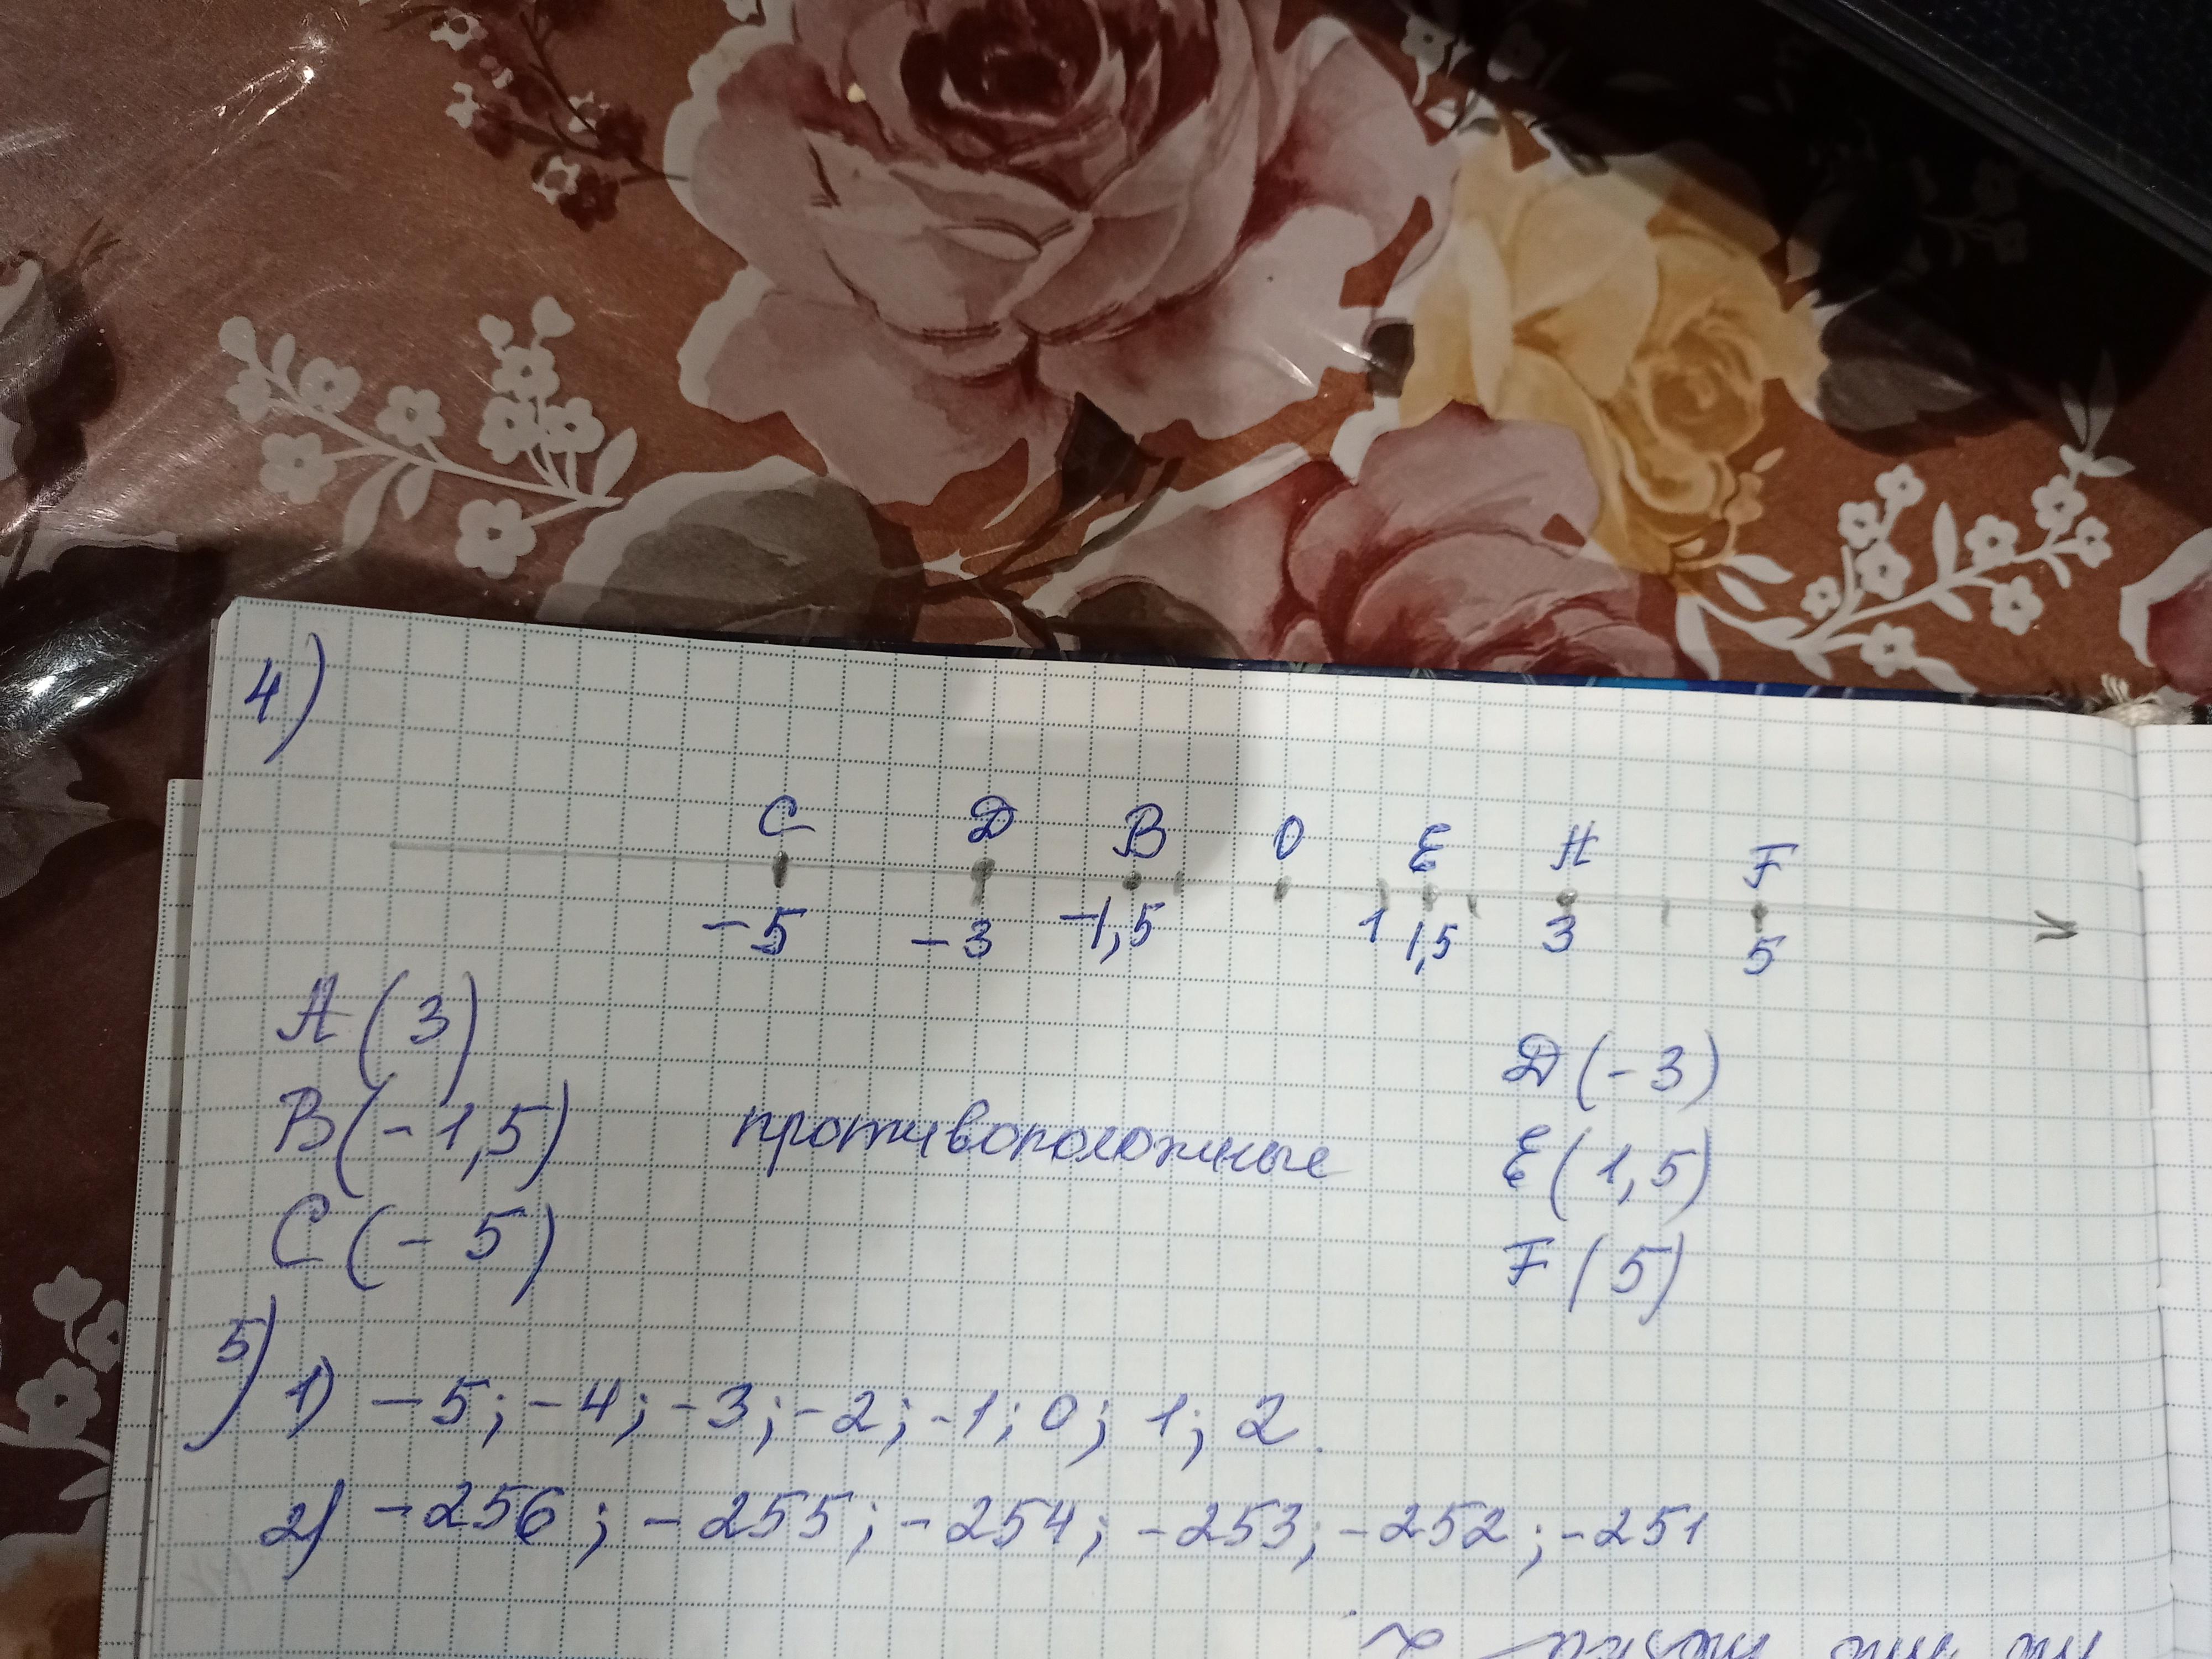 4)
C D B 0 E A F
-5 -3 -1,5 1 1,5 3 5
A(3)
D(-3)
B(-1,5) противоположные E(1,5)
C(-5) F(5)
5) 1) -5; -4; -3; -2; -1; 0; 1; 2.
2) -256; -255; -254; -253; -252; -251